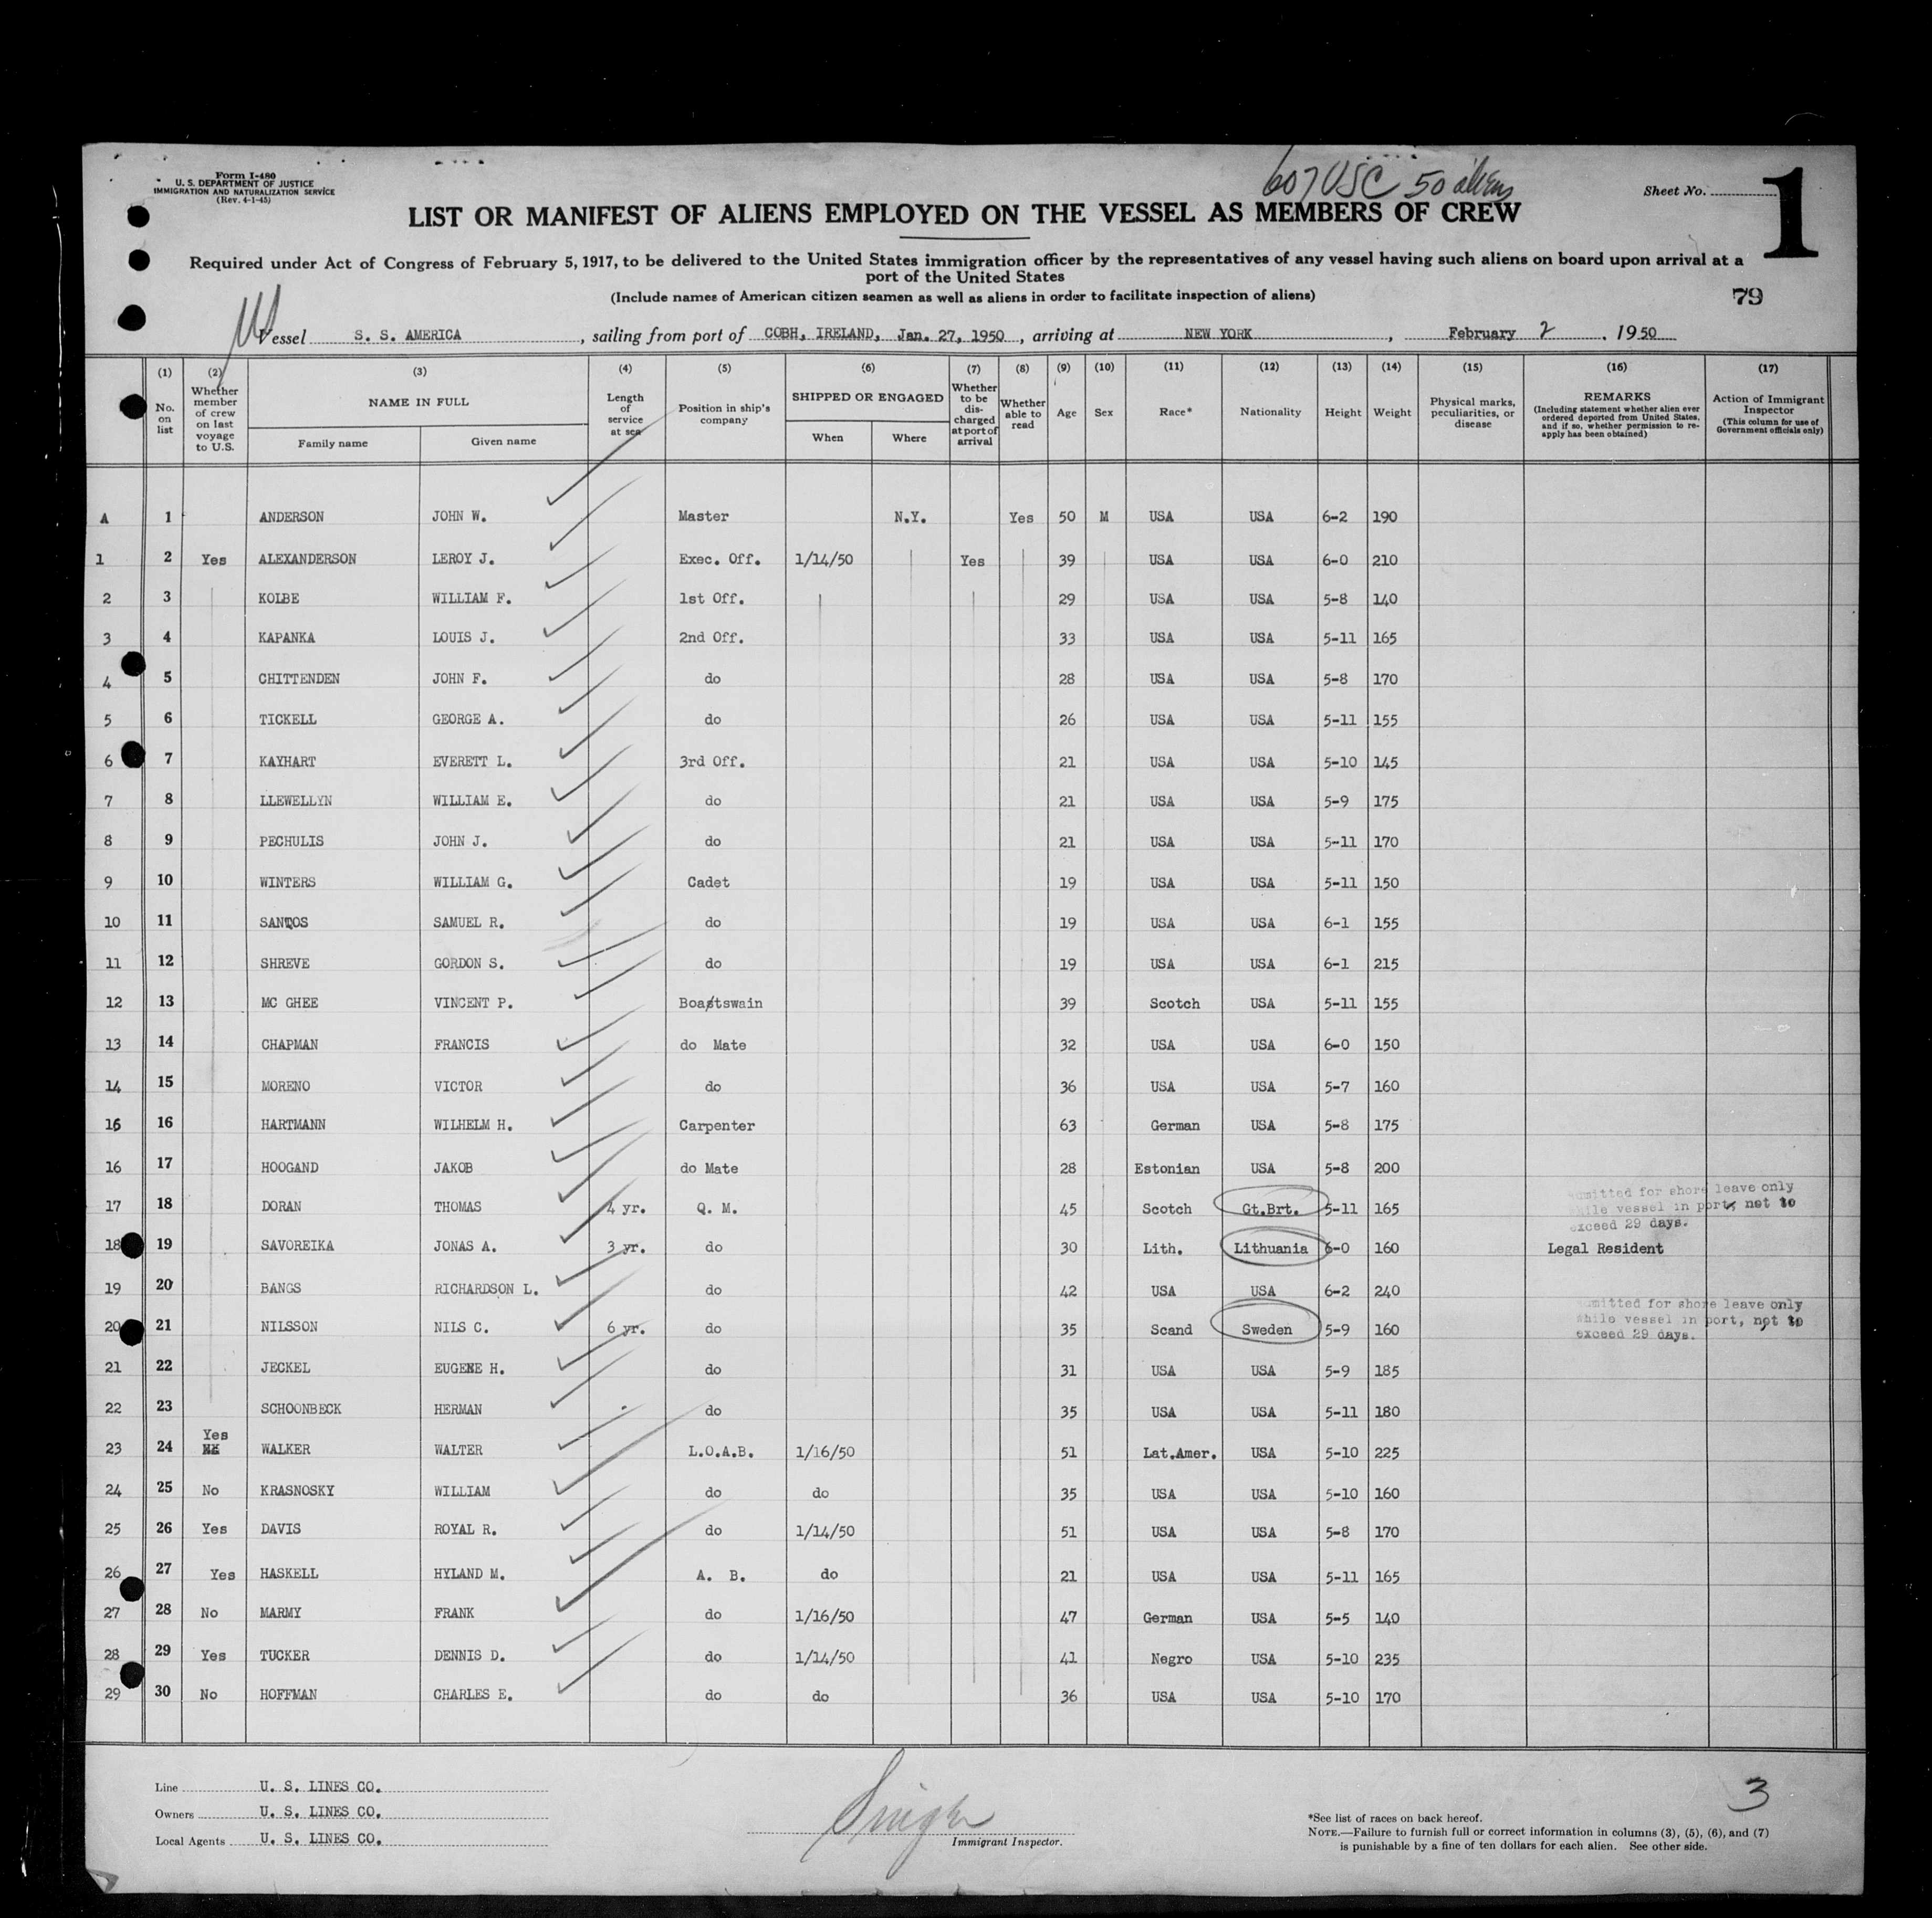 Form I-480
U. S. DEPARTMENT OF JUSTICE
IMMIGRATION AND NATURALIZATION SERVICE
(Rev. 4-1-45)
607 USC 50 aliens
Sheet No.
1
LIST OR MANIFEST OF ALIENS EMPLOYED ON THE VESSEL AS MEMBERS OF CREW
Required under Act of Congress of February 5, 1917, to be delivered to the United States immigration officer by the representatives of any vessel having such aliens on board upon arrival at a
port of the United States
(Include names of American citizen seamen as well as aliens in order to facilitate inspection of aliens)
79
Vessel S. S. AMERICA, sailing from port of COBH, IRELAND, Jan. 27, 1950, arriving at NEW YORK, February 2, 1950
(1) No. on list
(2) Whether member of crew on last voyage to U.S.
(3) NAME IN FULL Family name Given name
(4) Length of service at sea
(5) Position in ship's company
(6) SHIPPED OR ENGAGED When Where
(7) Whether to be discharged at port of arrival
(8) Whether able to read
(9) Age
(10) Sex
(11) Race*
(12) Nationality
(13) Height
(14) Weight
(15) Physical marks, peculiarities, or disease
(16) REMARKS (Including statement whether alien ever ordered deported from United States, and if so, whether permission to reapply has been obtained)
(17) Action of Immigrant Inspector (This column for use of Government officials only)
A 1 ANDERSON JOHN W. Master N.Y. Yes 50 M USA USA 6-2 190
1 2 Yes ALEXANDERSON LEROY J. Exec. Off. 1/14/50 Yes 39 USA USA 6-0 210
2 3 KOLBE WILLIAM F. 1st Off. 29 USA USA 5-8 140
3 4 KAPANKA LOUIS J. 2nd Off. 33 USA USA 5-11 165
4 5 CHITTENDEN JOHN F. do 28 USA USA 5-8 170
5 6 TICKELL GEORGE A. do 26 USA USA 5-11 155
6 7 KAYHART EVERETT L. 3rd Off. 21 USA USA 5-10 145
7 8 LLEWELLYN WILLIAM E. do 21 USA USA 5-9 175
8 9 PECHULIS JOHN J. do 21 USA USA 5-11 170
9 10 WINTERS WILLIAM G. Cadet 19 USA USA 5-11 150
10 11 SANTOS SAMUEL R. do 19 USA USA 6-1 155
11 12 SHREVE GORDON S. do 19 USA USA 6-1 215
12 13 MC GHEE VINCENT P. Boatswain 39 Scotch USA 5-11 155
13 14 CHAPMAN FRANCIS do Mate 32 USA USA 6-0 150
14 15 MORENO VICTOR do 36 USA USA 5-7 160
15 16 HARTMANN WILHELM H. Carpenter 63 German USA 5-8 175
16 17 HOOGAND JAKOB do Mate 28 Estonian USA 5-8 200
17 18 DORAN THOMAS 4 yr. Q. M. 45 Scotch Gt.Brt. 5-11 165 admitted for shore leave only while vessel in port, not to exceed 29 days.
18 19 SAVOREIKA JONAS A. 3 yr. do 30 Lith. Lithuania 6-0 160 Legal Resident
19 20 BANGS RICHARDSON L. do 42 USA USA 6-2 240
20 21 NILSSON NILS C. 6 yr. do 35 Scand Sweden 5-9 160 admitted for shore leave only while vessel in port, not to exceed 29 days.
21 22 JECKEL EUGENE H. do 31 USA USA 5-9 185
22 23 SCHOONBECK HERMAN do 35 USA USA 5-11 180
23 24 Yes WALKER WALTER L.O.A.B. 1/16/50 51 Lat.Amer. USA 5-10 225
24 25 No KRASNOSKY WILLIAM do do 35 USA USA 5-10 160
25 26 Yes DAVIS ROYAL R. do 1/14/50 51 USA USA 5-8 170
26 27 Yes HASKELL HYLAND M. A. B. do 21 USA USA 5-11 165
27 28 No MARMY FRANK do 1/16/50 47 German USA 5-5 140
28 29 Yes TUCKER DENNIS D. do 1/14/50 41 Negro USA 5-10 235
29 30 No HOFFMAN CHARLES E. do do 36 USA USA 5-10 170
Line U. S. LINES CO.
Owners U. S. LINES CO.
Local Agents U. S. LINES CO.
Immigrant Inspector.
3
*See list of races on back hereof.
NOTE.—Failure to furnish full or correct information in columns (3), (5), (6), and (7)
is punishable by a fine of ten dollars for each alien. See other side.